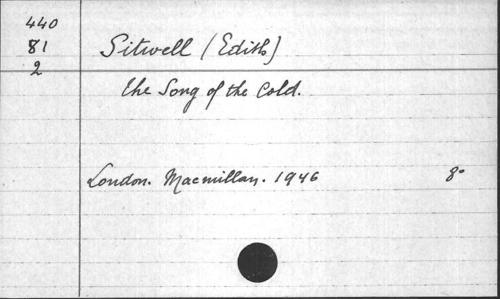 440
81
2
Sitwell (Edith)
The Song of the Cold.
London. Macmillan. 1946 8°